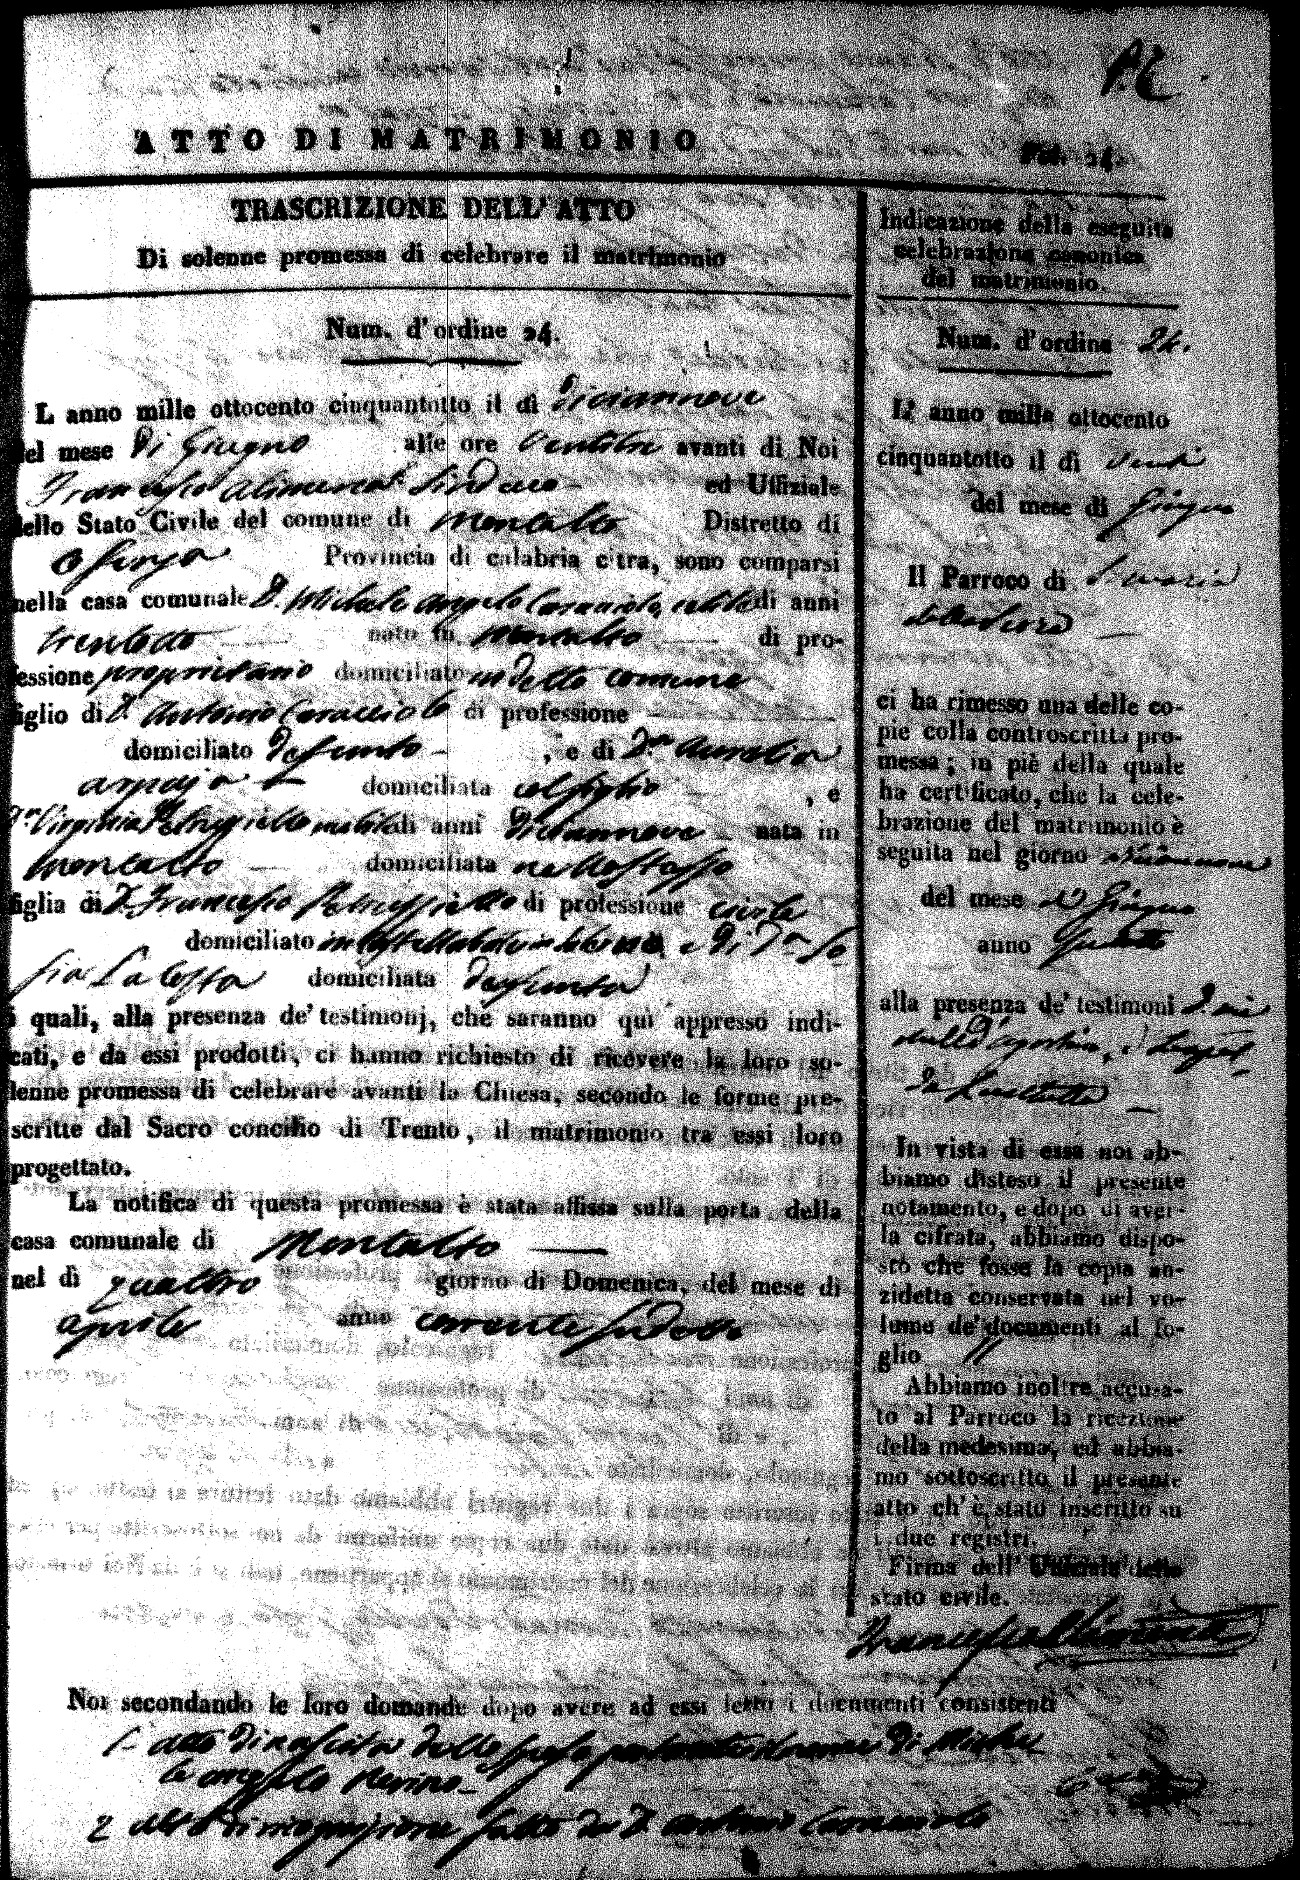 ATTO DI MATRIMONIO
Fol. 24.
TRASCRIZIONE DELL' ATTO
Di solenne promessa di celebrare il matrimonio
Num. d' ordine 24.
L anno mille ottocento cinquantotto il dì diciannove
del mese di Giugno alle ore ventitre avanti di Noi
Francesco Alimena Sindaco ed Uffiziale
dello Stato Civile del comune di Montalto Distretto di
Cosenza Provincia di calabria citra, sono comparsi
nella casa comunale D. Michele Angelo Caracciolo, celibe di anni
trentotto nato in Montalto di pro-
fessione proprietario domiciliato in detto comune
figlio di D. Antonio Caracciolo di professione
domiciliato defunto , e di D.na Aurelia
domiciliata col figlio , e
D.na Virginia nubile di anni diciannove nata in
Montalto domiciliata nello stesso
figlia di D. Francesco di professione civile
domiciliato in e di D.na So
fia La Costa domiciliata defunta
i quali, alla presenza de' testimonj, che saranno quì appresso indi-
cati, e da essi prodotti, ci hanno richiesto di ricevere la loro so-
lenne promessa di celebrare avanti la Chiesa, secondo le forme pre-
scritte dal Sacro concilio di Trento, il matrimonio tra essi loro
progettato.
La notifica di questa promessa è stata affissa sulla porta della
casa comunale di Montalto
nel dì quattro giorno di Domenica, del mese di
aprile anno corrente suddetto
Indicazione della eseguita
celebrazione canonica
del matrimonio.
Num. d' ordine 24.
L' anno mille ottocento
cinquantotto il dì venti
del mese di Giugno
Il Parroco di S. Maria
della Serra
ci ha rimesso una delle co-
pie colla controscritta pro-
messa; in piè della quale
ha certificato, che la cele-
brazione del matrimonio è
seguita nel giorno diciannove
del mese di Giugno
anno suddetto
alla presenza de' testimoni D.
d'Agostino, e
In vista di essa noi ab-
biamo disteso il presente
notamento, e dopo di aver-
la cifrata, abbiamo dispo-
sto che fosse la copia an-
zidetta conservata nel vo-
lume de' documenti al fo-
glio 11
Abbiamo inoltre accusa-
to al Parroco la ricezione
della medesima, ed abbia-
mo sottoscritto il presente
atto ch' è stato inscritto su
i due registri.
Firma dell' Uffiziale dello
stato civile.
Francesco Alimena
Noi secondando le loro domande dopo avere ad essi letto i documenti consistenti
1. atto di nascita dello sposo di Miche
le Angelo
2 atto di fatto da D. Antonio Caracciolo